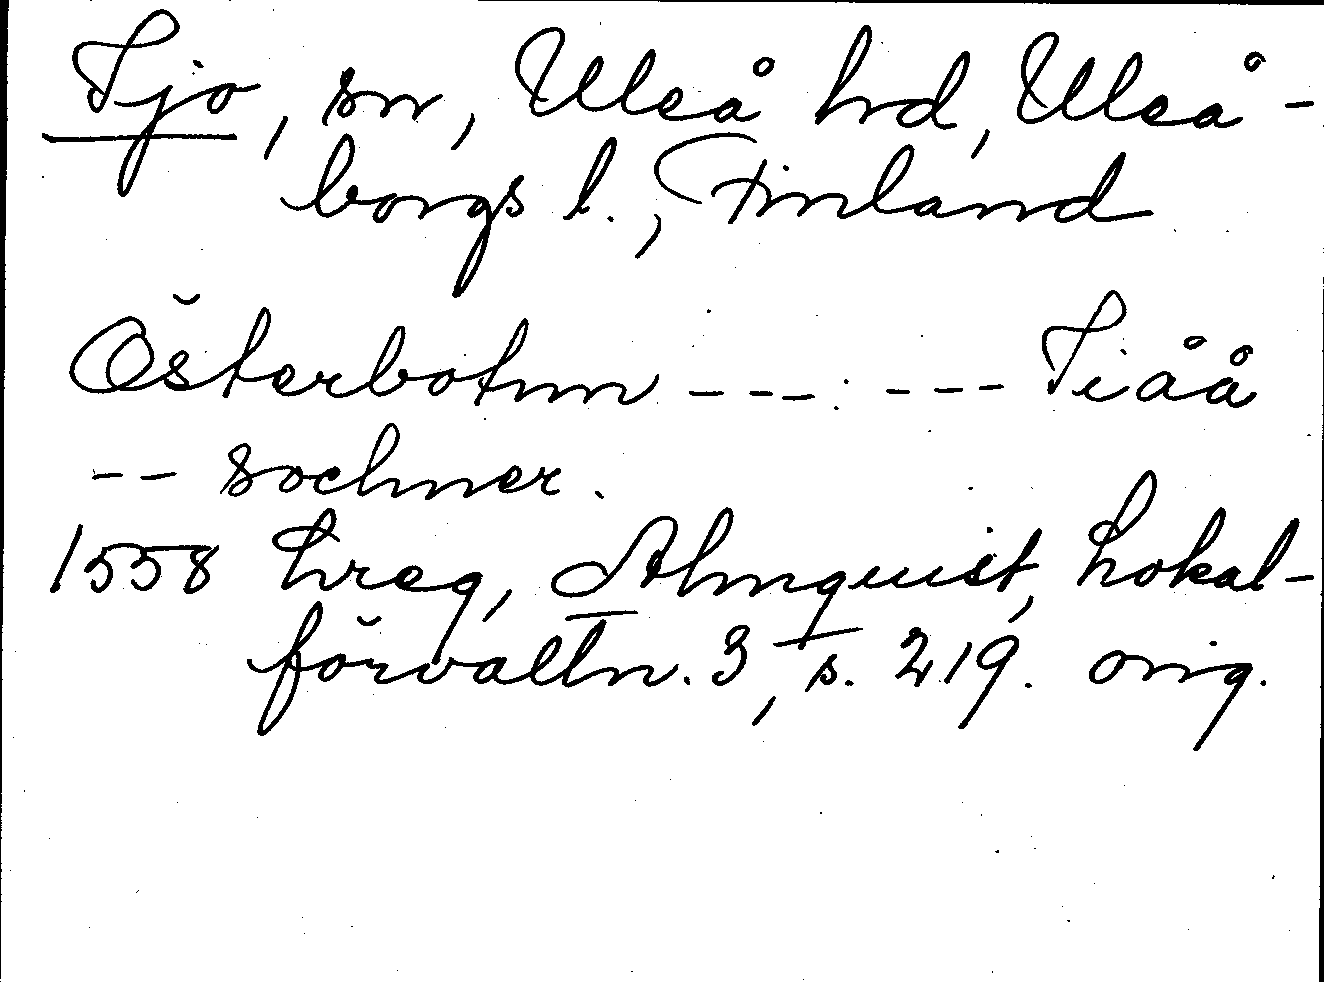 Ijo, sn, Uleå hd, Uleå-
borgs l., Finland
Österbotnn --- --- Iiåå
-- sochner.
1558 Lreg, Almquist, Lokal-
förvaltn. 3, s. 219. orig.